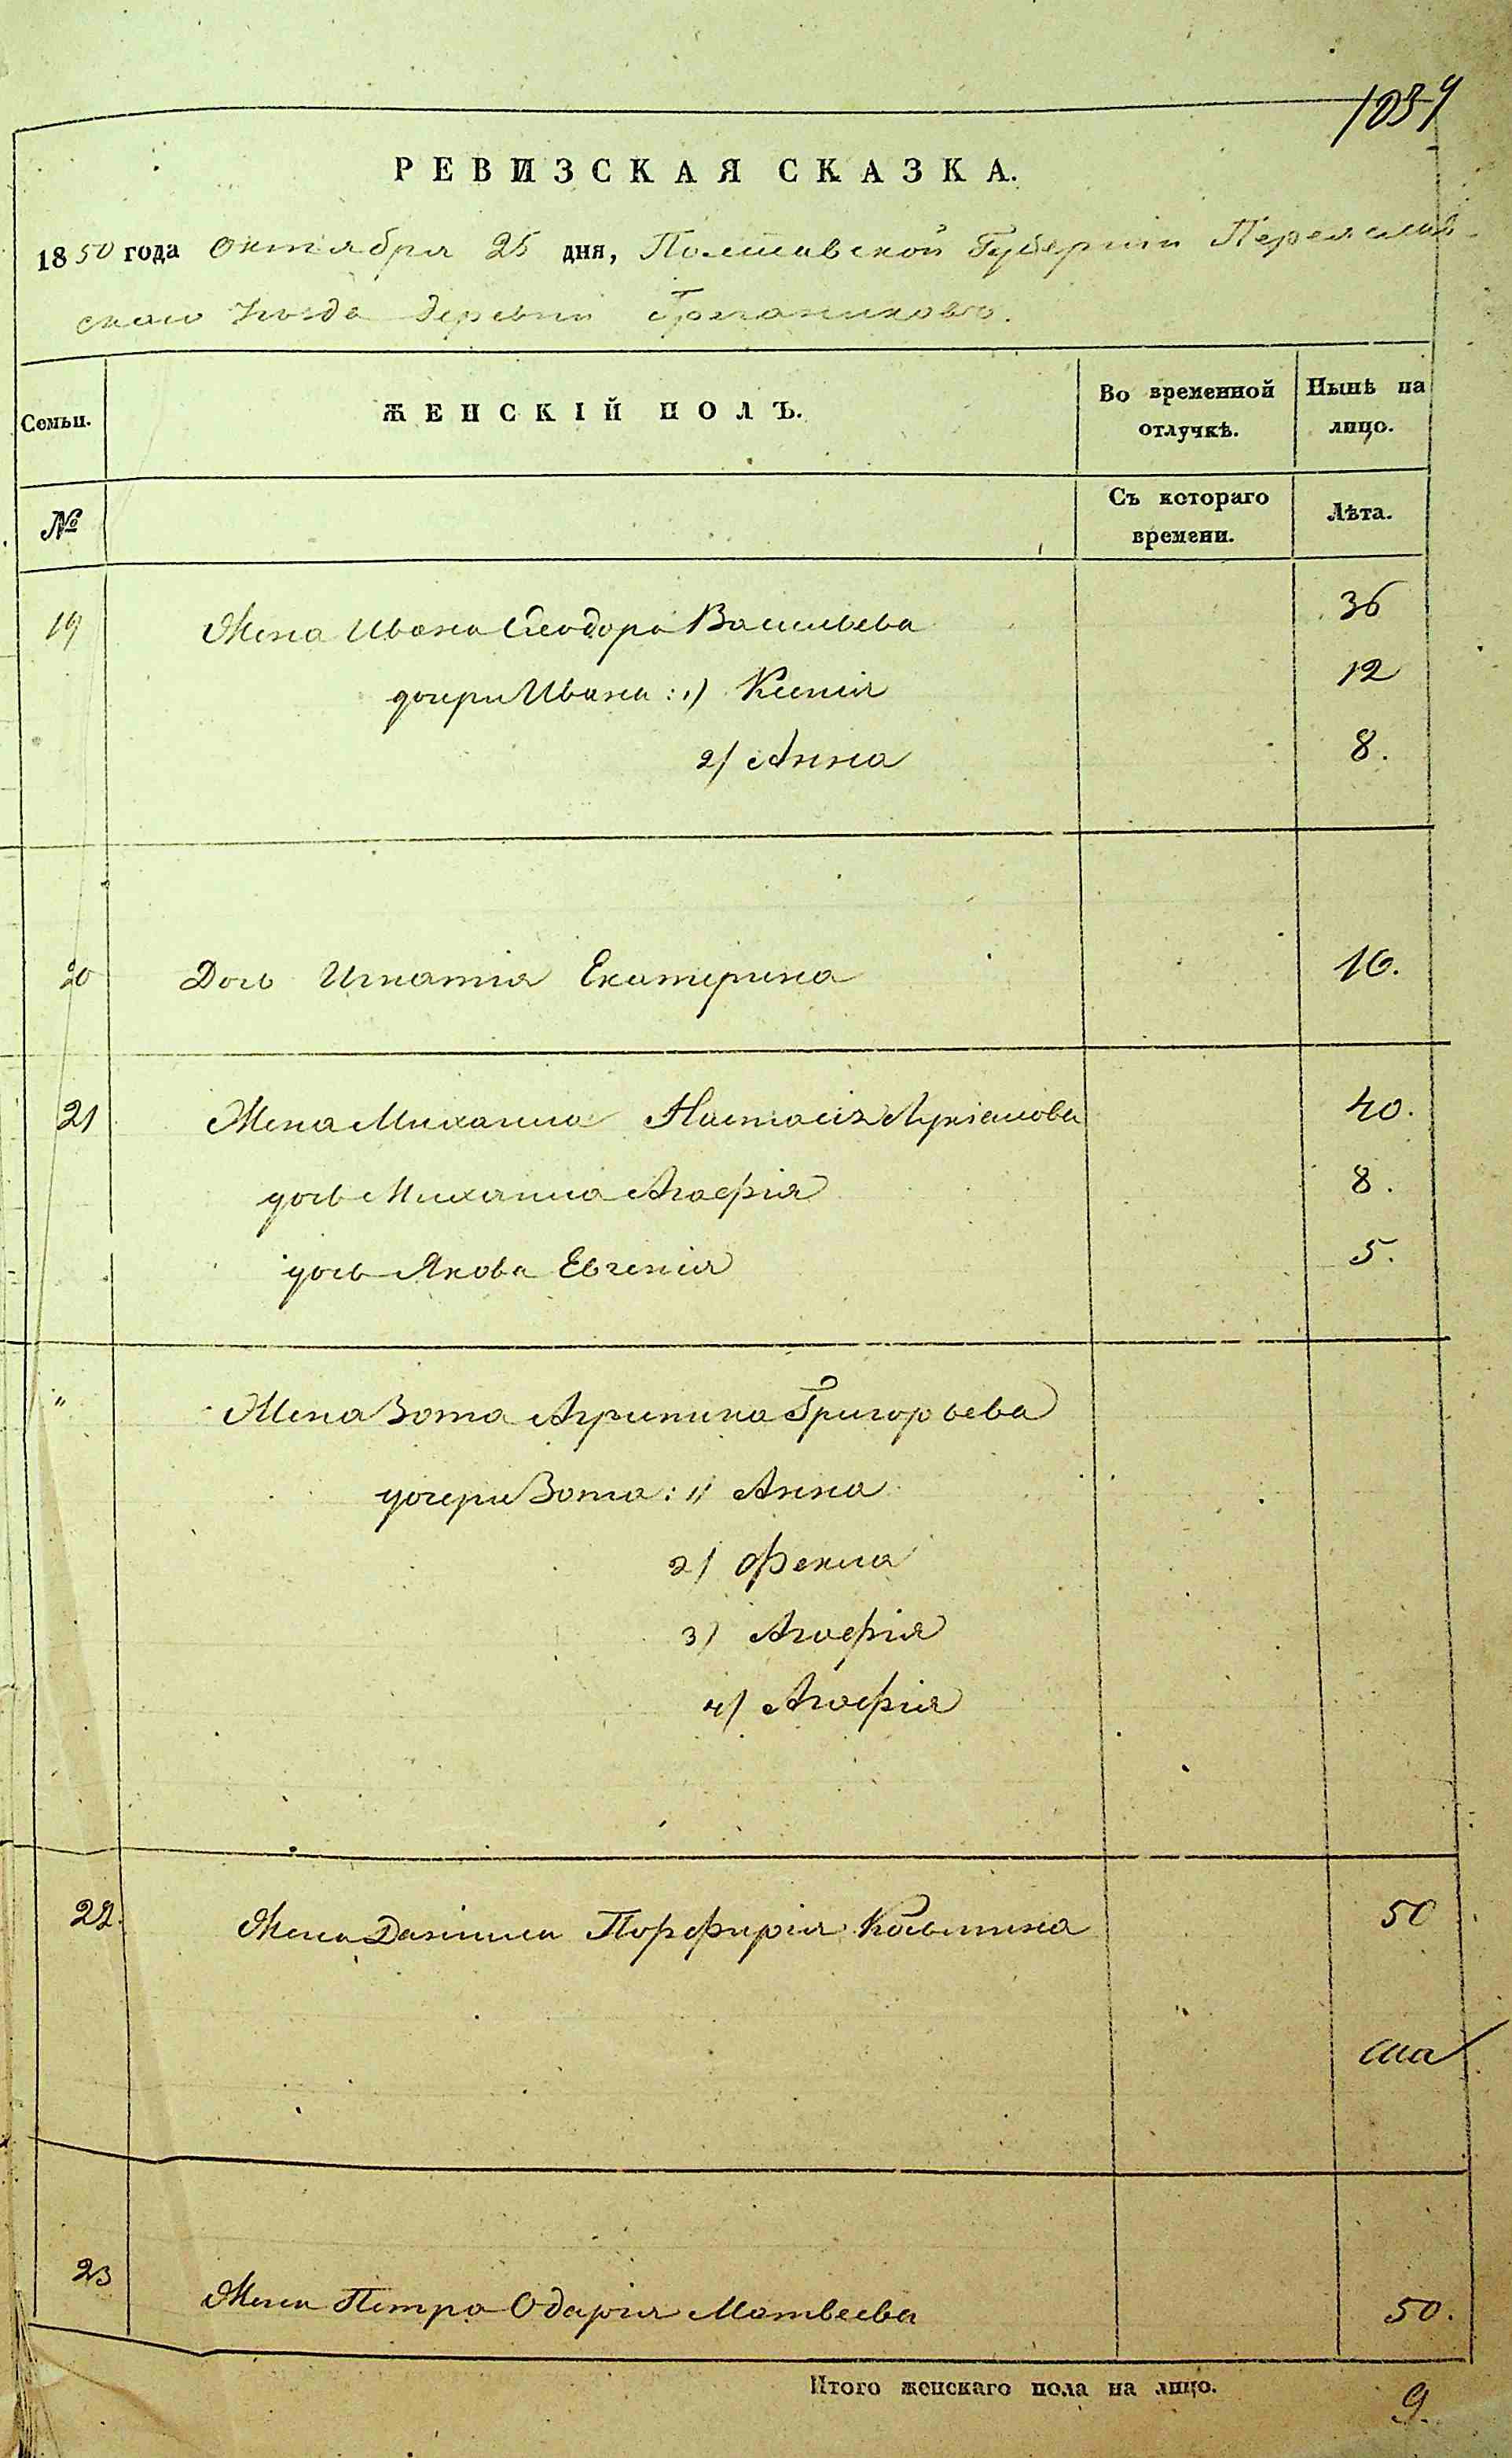 1039
РЕВИЗСКАЯ СКАЗКА.
1850 года Октября 25 дня, Полтавской Губернии Переяслав-
скаго уезда деревни
Семьи. ЖЕНСКІЙ ПОЛЪ. Во временной отлучкѣ. Нынѣ на лицо.
№ Съ котораго времени. Лѣта.
19 Жена Ивана Феодора Васильева 36
дочери Ивана: 1) Ксенія 12
2) Анна 8.
20 Дочь Игнатія Екатерина 16.
21 Жена Михаила Настасія Лукіанова 40.
дочь Михаила Агафія 8.
дочь Якова Евгенія 5.
" Жена Зота Агрипина Григорьева
дочери Зота: 1) Анна
2) Фекла
3) Агафія
4) Агафія
22. Жена Даніила Порфирія Козьмина 50
23 Жена Петра Одарія Матвеева 50.
Итого женскаго пола на лицо. 9.